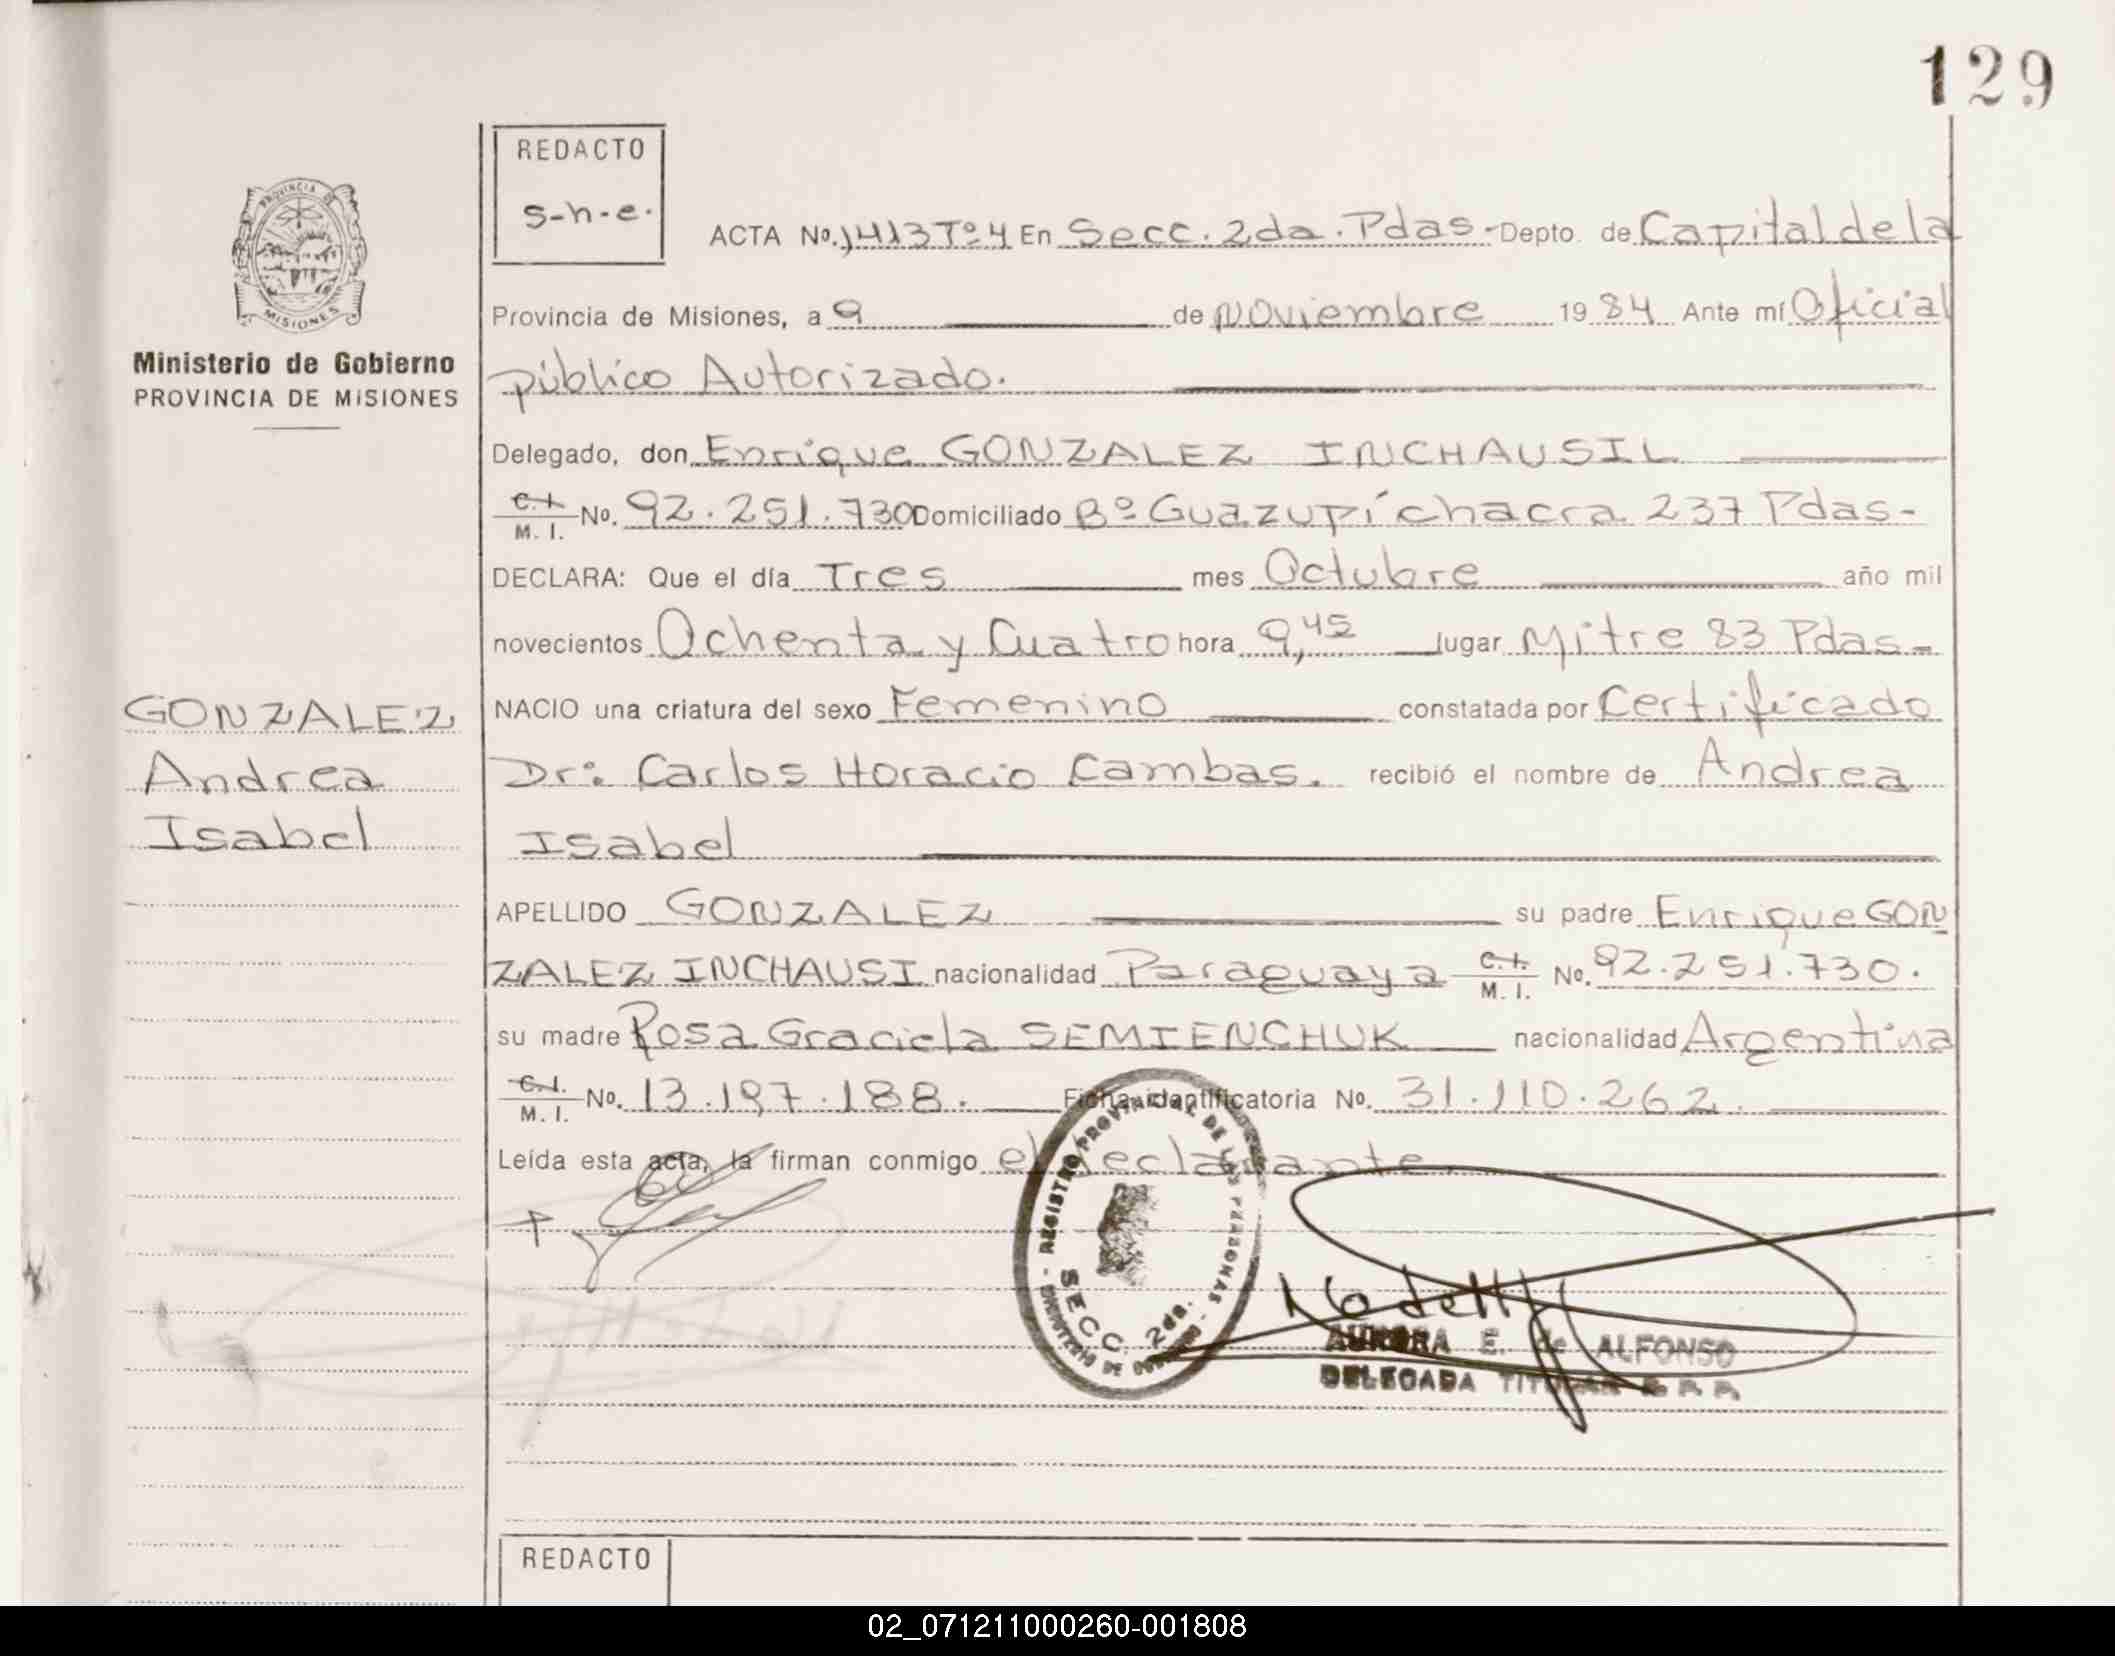 129
REDACTO
s-h-e.
ACTA No. 1413 Tº 4 En Secc. 2da. Pdas.- Depto. de Capital de la
PROVINCIA DE
MISIONES
Provincia de Misiones, a 9 de Noviembre 1984 Ante mí Oficial
Ministerio de Gobierno
PROVINCIA DE MISIONES
público Autorizado.
Delegado, don Enrique GONZALEZ INCHAUSIL
C.I. M. I. No. 92.251.730 Domiciliado Bº Guazupí chacra 237 Pdas-
DECLARA: Que el día Tres mes Octubre año mil
novecientos Ochenta y Cuatro hora 9,45 lugar Mitre 83 Pdas-
GONZALEZ
Andrea
Isabel
NACIO una criatura del sexo Femenino constatada por Certificado
Dr: Carlos Horacio Cambas. recibió el nombre de Andrea
Isabel
APELLIDO GONZALEZ su padre Enrique GON
ZALEZ INCHAUSI nacionalidad Paraguaya C.I. M. I. No. 92.251.730.
su madre Rosa Graciela SEMIENCHUK nacionalidad Argentina
C.I. M. I. No. 13.197.188. Ficha identificatoria No. 31.110.262.
Leída esta acta, la firman conmigo el declarante.
REGISTRO PROVINCIAL DE LAS PERSONAS
SECC. 2da.
MINISTERIO DE GOBIERNO
AURORA E. de ALFONSO
DELEGADA TITULAR R. P. P.
REDACTO
02_071211000260-001808